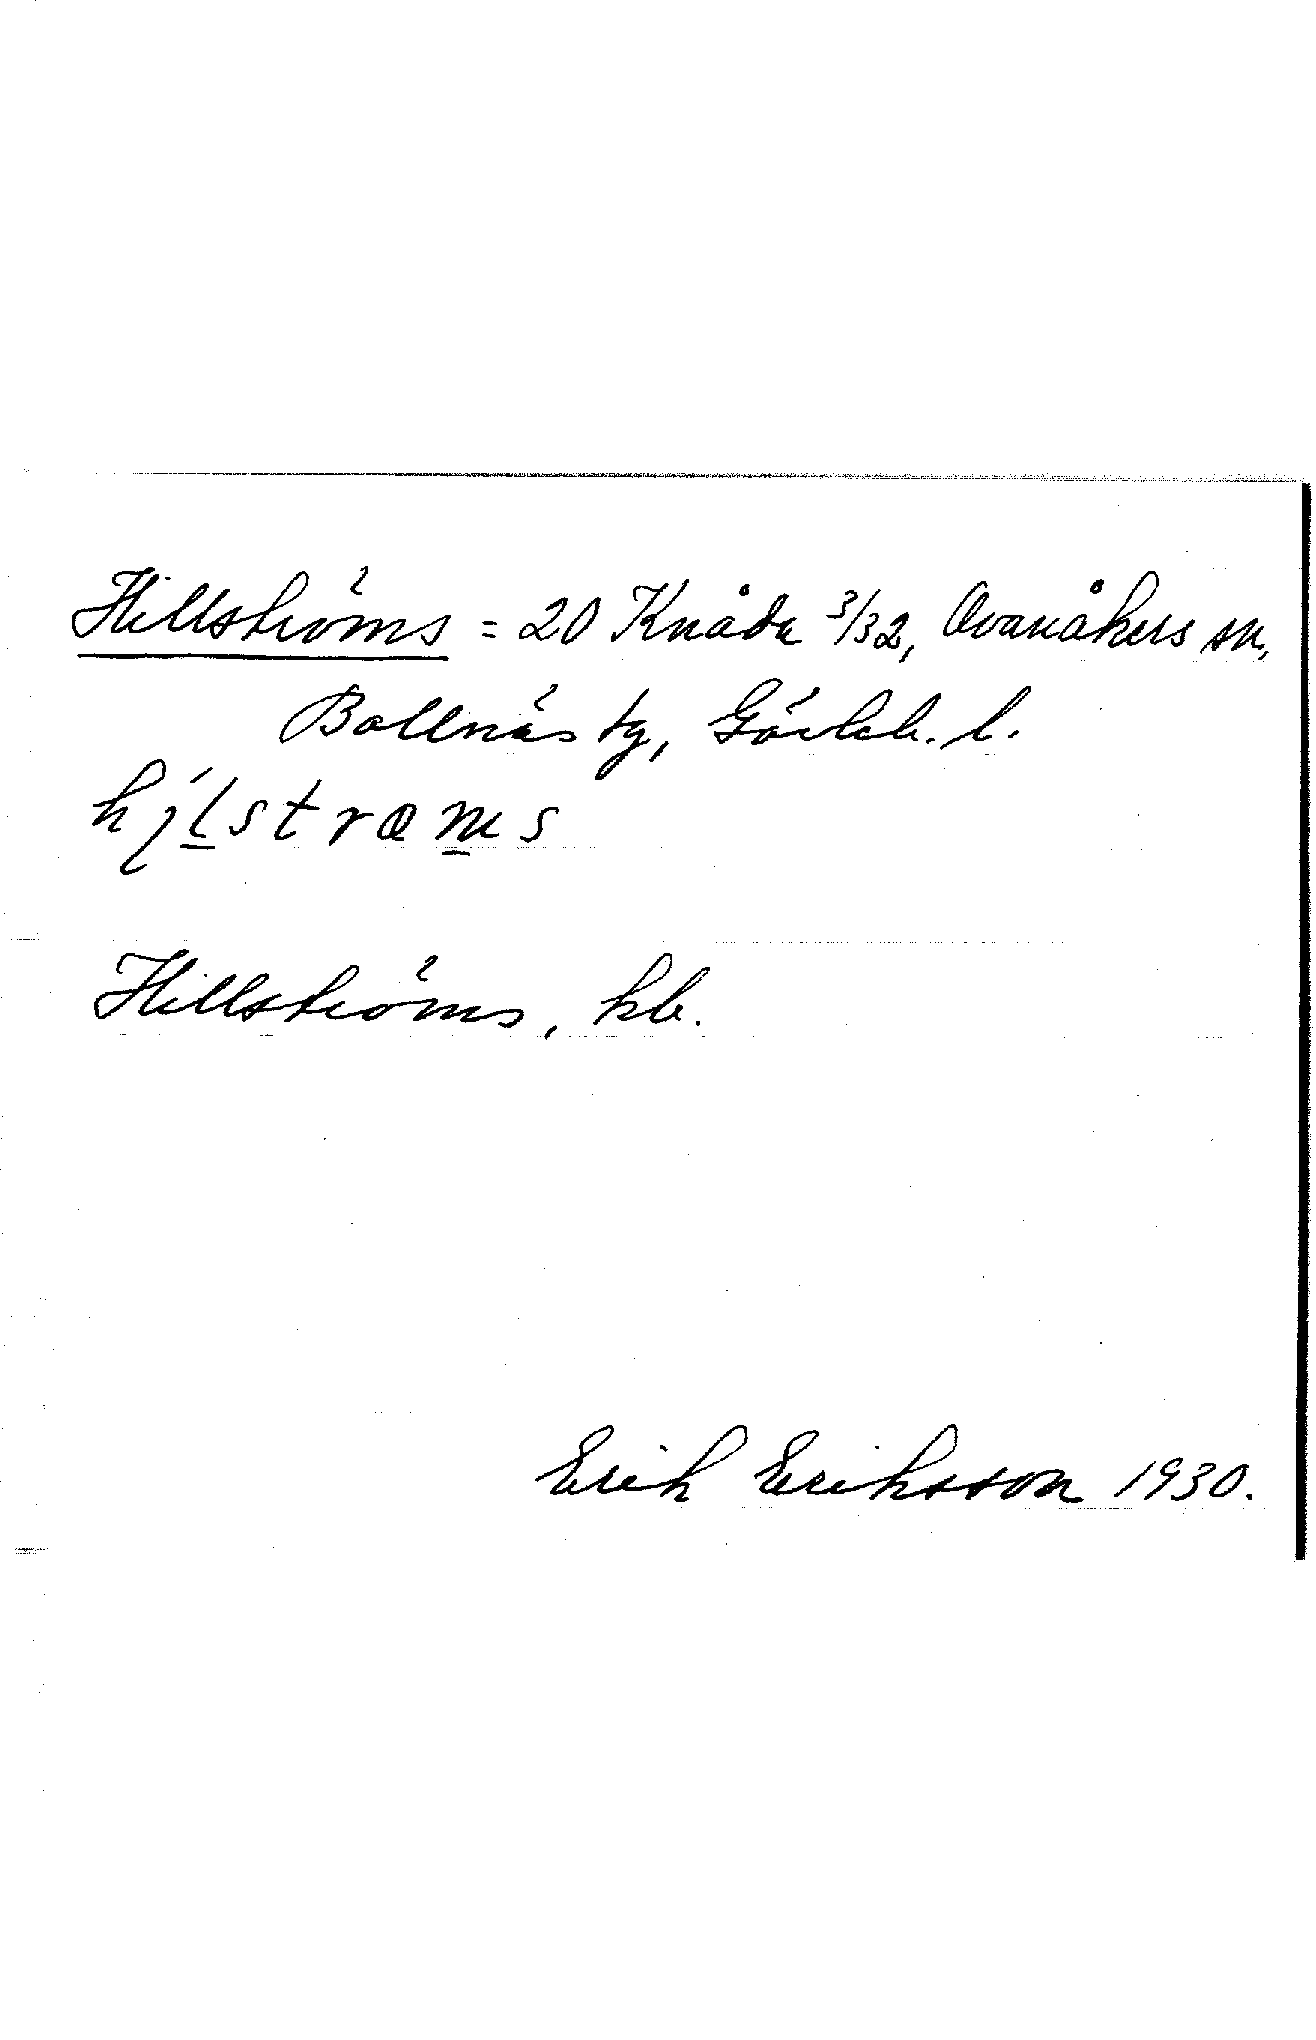 Hillströms = 20 Knåda 3/32, Ovanåkers sn,
Bollnäs tg, Gävleb. l.
hįlstrœms
Hillströms, kb.
Erik Eriksson 1930.